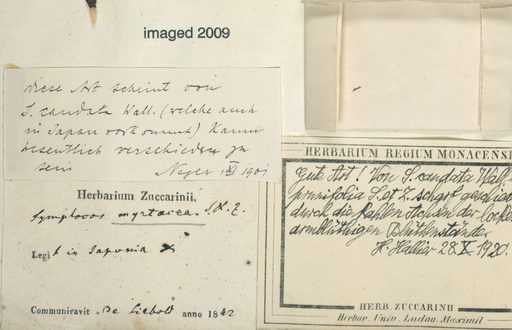 imaged 2009
diese Art scheint von
S. caudata Wall. (welche auch
in Japan vorkommt) kaum
wesentlich verschieden zu
sein Neger 1901
Herbarium Zuccarinii.
Symplocos myrtacea S. & Z.
Legit in Japonia
Communicavit De Siebold anno 1842
HERBARIUM REGIUM MONACENSE
Gute Art! Von S. caudata Wall.
prunifolia S. et Z. scharf geschieden
durch die kahlen Achsen der locker
armblüthigen Blüthenstände
H. Hallier 28.X.1920.
HERB. ZUCCARINII
Herbar. Univ. Ludov. Maximil